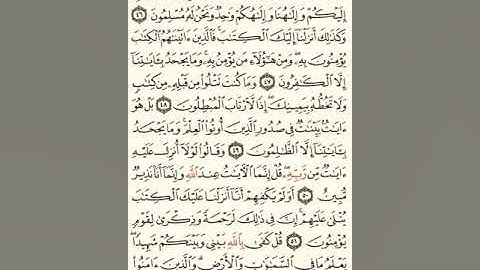 إِلَيْكُمْ وَإِلَٰهُنَا وَإِلَٰهُكُمْ وَٰحِدٌ وَنَحْنُ لَهُۥ مُسْلِمُونَ ٤٦
وَكَذَٰلِكَ أَنزَلْنَآ إِلَيْكَ ٱلْكِتَٰبَ فَٱلَّذِينَ ءَاتَيْنَٰهُمُ ٱلْكِتَٰبَ
يُؤْمِنُونَ بِهِۦ وَمِنْ هَٰٓؤُلَآءِ مَن يُؤْمِنُ بِهِۦ وَمَا يَجْحَدُ بِـَٔايَٰتِنَآ
إِلَّا ٱلْكَٰفِرُونَ ٤٧ وَمَا كُنتَ تَتْلُوا۟ مِن قَبْلِهِۦ مِن كِتَٰبٍ
وَلَا تَخُطُّهُۥ بِيَمِينِكَ إِذًا لَّٱرْتَابَ ٱلْمُبْطِلُونَ ٤٨ بَلْ هُوَ
ءَايَٰتٌۢ بَيِّنَٰتٌ فِى صُدُورِ ٱلَّذِينَ أُوتُوا۟ ٱلْعِلْمَ وَمَا يَجْحَدُ
بِـَٔايَٰتِنَآ إِلَّا ٱلظَّٰلِمُونَ ٤٩ وَقَالُوا۟ لَوْلَآ أُنزِلَ عَلَيْهِ
ءَايَٰتٌ مِّن رَّبِّهِۦ قُلْ إِنَّمَا ٱلْـَٔايَٰتُ عِندَ ٱللَّهِ وَإِنَّمَآ أَنَا۠ نَذِيرٌ
مُّبِينٌ ٥٠ أَوَلَمْ يَكْفِهِمْ أَنَّآ أَنزَلْنَا عَلَيْكَ ٱلْكِتَٰبَ
يُتْلَىٰ عَلَيْهِمْ إِنَّ فِى ذَٰلِكَ لَرَحْمَةً وَذِكْرَىٰ لِقَوْمٍ
يُؤْمِنُونَ ٥١ قُلْ كَفَىٰ بِٱللَّهِ بَيْنِى وَبَيْنَكُمْ شَهِيدًا
يَعْلَمُ مَا فِى ٱلسَّمَٰوَٰتِ وَٱلْأَرْضِ وَٱلَّذِينَ ءَامَنُوا۟